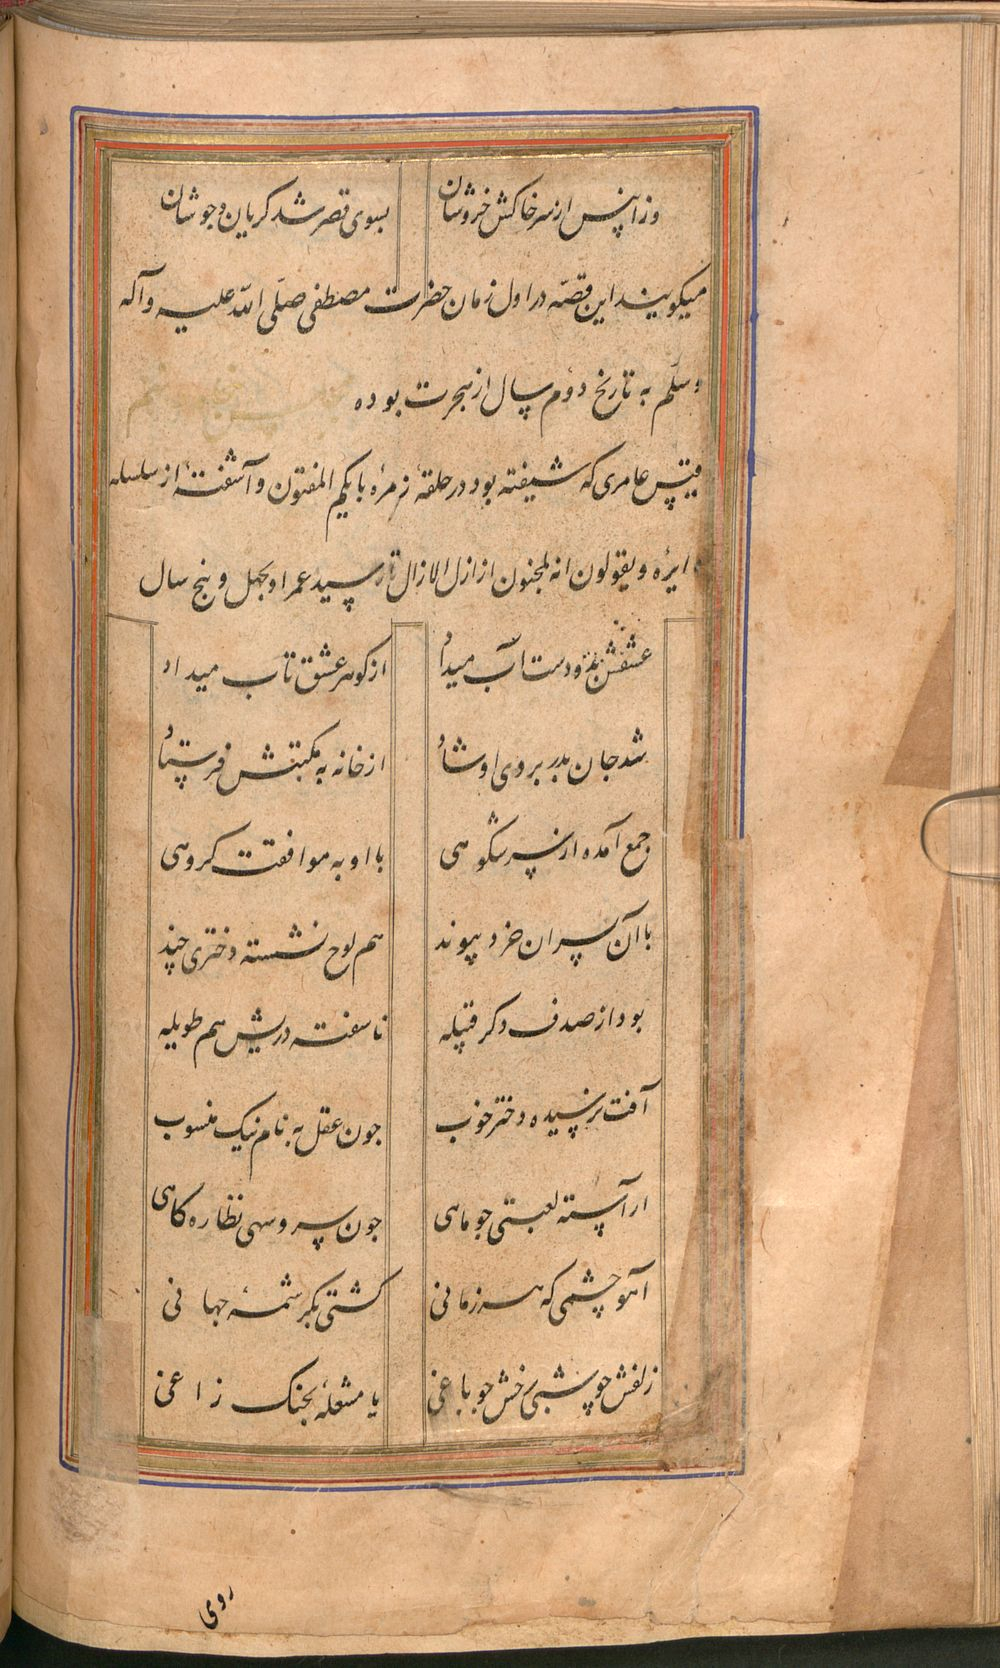 وزانپس از سر خاکش خروشان بسوی قصر شد کریان و جوشان
میکویند این قصّه در اول زمان حضرت مصطفی صلّی اللّه علیه و آله
وسلّم به تاریخ دوم سال از هجرت بوده
قیس عامری که شیفته بود در حلقهٔ زمرهٔ بایکم المفتون و آشفتهٔ از سلسله
دایرهٔ و یقولون انه لمجنون از ازل الازال تا رسید عمر او بچهل و پنج سال
عشقش بدو دست آب میداد از کوهر عشق تاب میداد
شد جان پدر بروی او شاد از خانه به مکتبش فرستاد
جمع آمده از سر شکوهی با او به موافقت کروهی
با آن پسران خرد پیوند هم لوح نشسته دختری چند
بود از صدف دکر قبیله ناسفته دریش هم طویله
آفت نرسیده دختر خوب جون عقل به نام نیک منسوب
آراسته لعبتی جو ماهی جون سرو سهی نظاره کاهی
آهو چشمی که هر زمانی کشتی بکرشمهٔ جهانی
زلفش جو شبی رخش جو باغی یا مشعلهٔ بجنک زاغی
روی